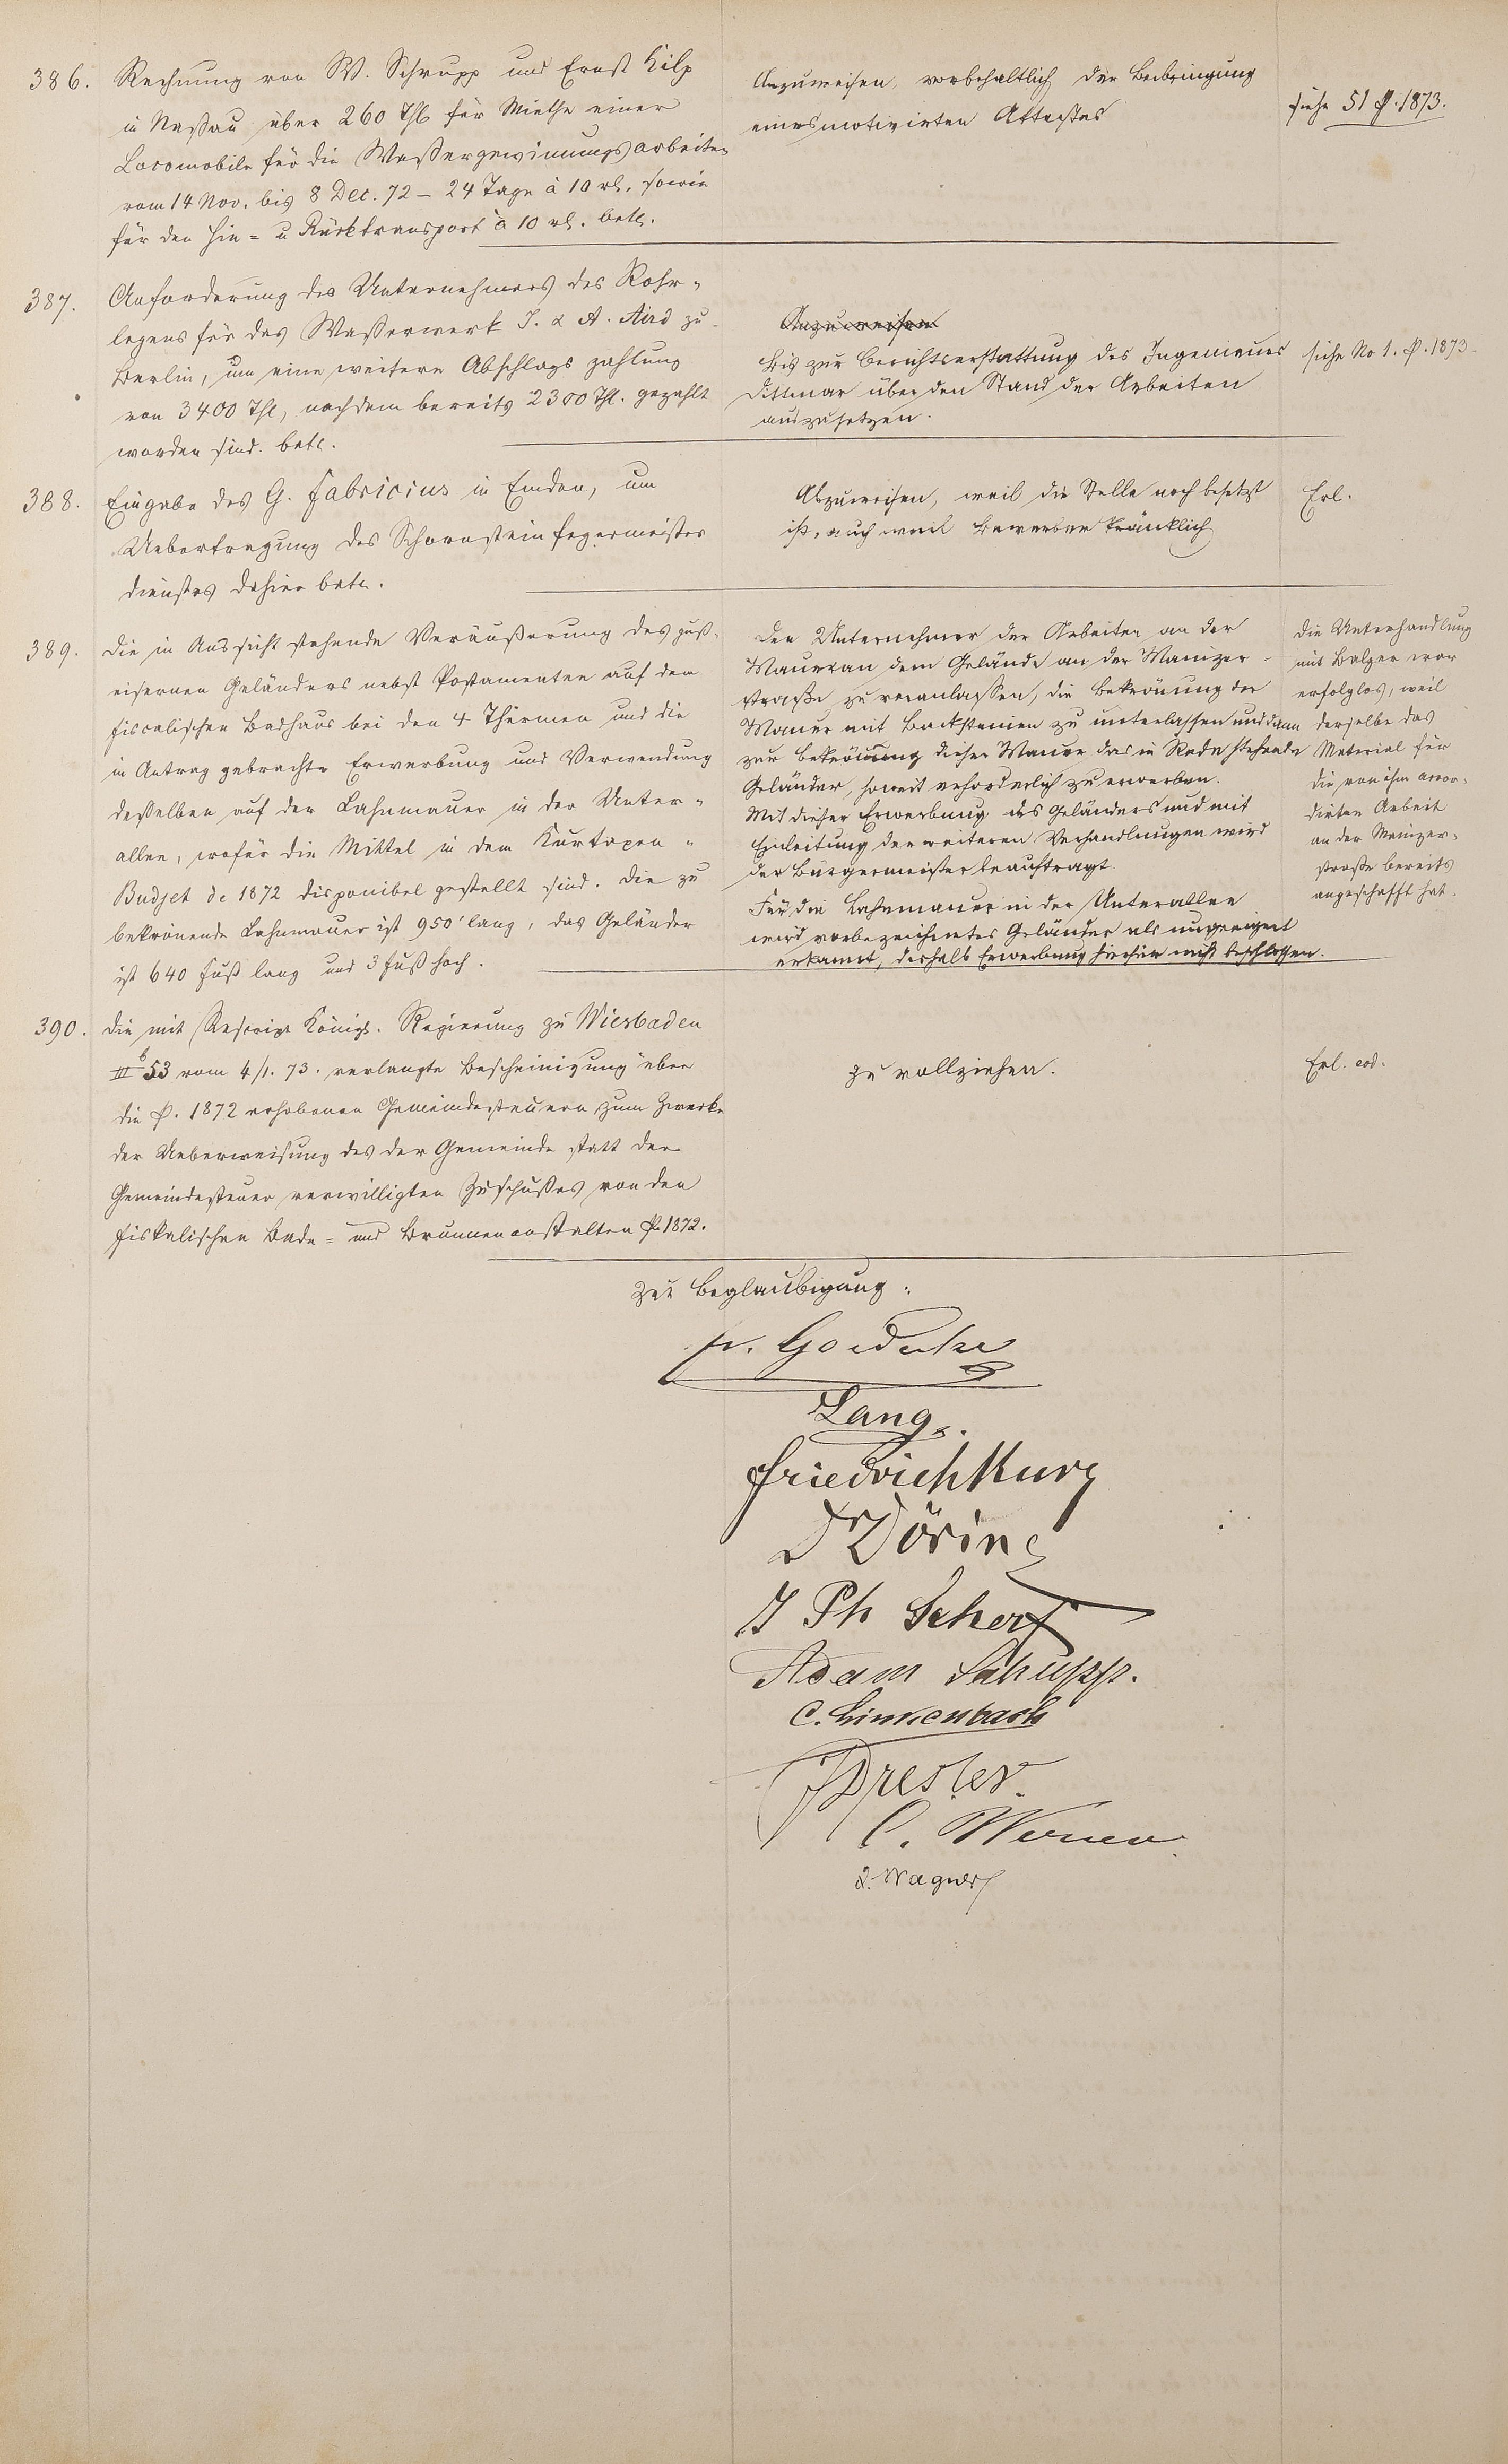 386. Rechnung von W. Schrupp und Ernst Hilp
in Naßau über 260 Thl für Miethe einer
Locomobile für die Waßergewinnungsarbeiten
vom 14 Nov. bis 8 Dec. 72 – 24 Tage à 10 rl. sowie
für den Hin- u Rücktransport à 10 rl. betr.
Anzuweisen, vorbehaltlich der Beibringung
eines motivirten Attestes
siehe 51 p. 1873.
387. Anforderung des Unternehmers des Rohr-
legens für das Waßerwerk J. & A. Aird zu
Berlin, um eine weitere Abschlagszahlung
von 3400 Thl, nachdem bereits 2300 Thl. gezahlt
worden sind. betr.
Anzuweisen
Bis zur Berichtserstattung des Ingenieurs
Dittmar über den Stand der Arbeiten
auszusetzen.
siehe No 1. p. 1873
388. Eingabe des G. Fabricius in Emden, um
Uebertragung des Schornsteinfegermeister
dienstes dahier betr.
Abzuweisen, weil die Stelle noch besetzt
ist, auch weil Bewerber kränklich
Erl.
389. Die in Aussicht stehende Veräußerung des guß-
eisernen Geländers nebst Postamenten auf dem
fiscalischen Badhaus bei den 4 Thürmen und die
in Antrag gebrachte Erwerbung und Verwendung
deßelben auf der Lahnmauer in der Unter-
allee, wofür die Mittel in dem Kurtaxen-
Budjet de 1872 disponibel gestellt sind. Die zu
bekrönende Lahnmauer ist 950' lang, das Geländer
ist 640 Fuß lang und 3 Fuß hoch.
Den Unternehmer der Arbeiten an der
Mauer an dem Gelände an der Mainzer-
straße zu veranlassen, die Bekrönung der
Mauer mit Backsteinen zu unterlassen und dann
zur Bekrönung dieser Mauer das in Rede stehende
Geländer, soweit erforderlich zu erwerben.
Mit dieser Erwerbung des Geländers und mit
Einleitung der weiteren Verhandlungen wird
der Bürgermeister beauftragt.
Für die Lahnmauer in der Unterallee
wird vorbezeichnetes Geländer als ungeeignet
erkannt, deshalb Erwerbung hierfür nicht beschlossen.
Die Unterhandlung
mit Balzer war
erfolglos, weil
derselbe das
Material für
die von ihm accor-
dirten Arbeit
an der Mainzer-
straße bereits
angeschafft hat.
390. Die mit Rescript Königl. Regierung zu Wiesbaden
III b 53 vom 4/1. 73. verlangte Bescheinigung über
die p. 1872 erhobenen Gemeindesteuern zum Zwecke
der Ueberweisung des der Gemeinde statt der
Gemeindesteuer verwilligten Zuschußes von den
fiskalischen Bade- und Brunnenanstalten p. 1872.
zu vollziehen.
Erl. eod.
Zur Beglaubigung:
Lang.
Friedrich Kurz
Dr Döring
J Ph Scherf
Adam Schupp.
C. Linkenbach
C. Werner
Wagner